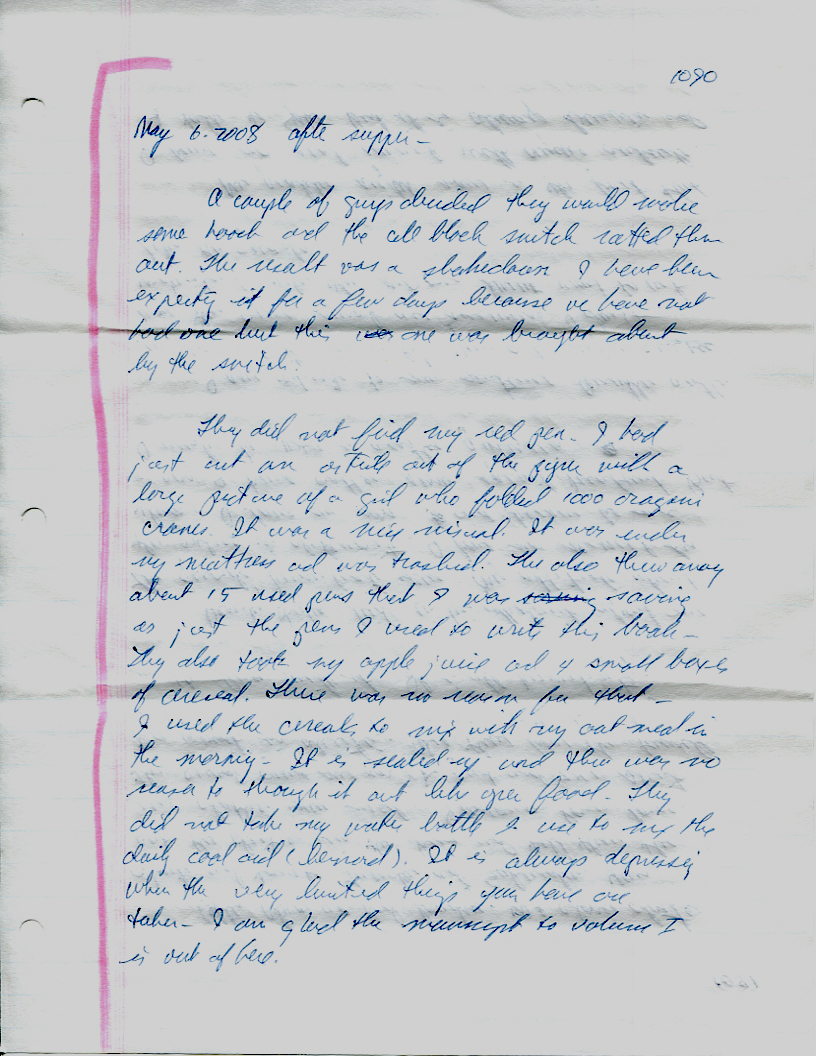 1090
May 6. 2008 afte supper -
A couple of guys decided they would make
some hooch and the cell block snitch ratted them
out. The result was a shakedown I have been
expecting it for a few days because we have not
had one but this was one was brought about
by the snitch.
They did not find my red pen. I had
just cut an article out of the paper with a
large picture of a girl who folded 1000 oragami
cranes. It was a nice visual. It was under
my mattress and was trashed. The also threw away
about 15 used pens that I was saving saving
as just the pens I used to write this book -
They also took my apple juice and 4 small boxes
of cereal. There was no reason for that -
I used the cereals to mix with my oat meal in
the morning - It is sealed up and there was no
reason to through it out like open food. They
did not take my water bottle I use to mix the
daily cool aid (lemoid). It is always depressing
when the very limited things you have are
taken - I am glad the manuscript to volume I
is out of here.